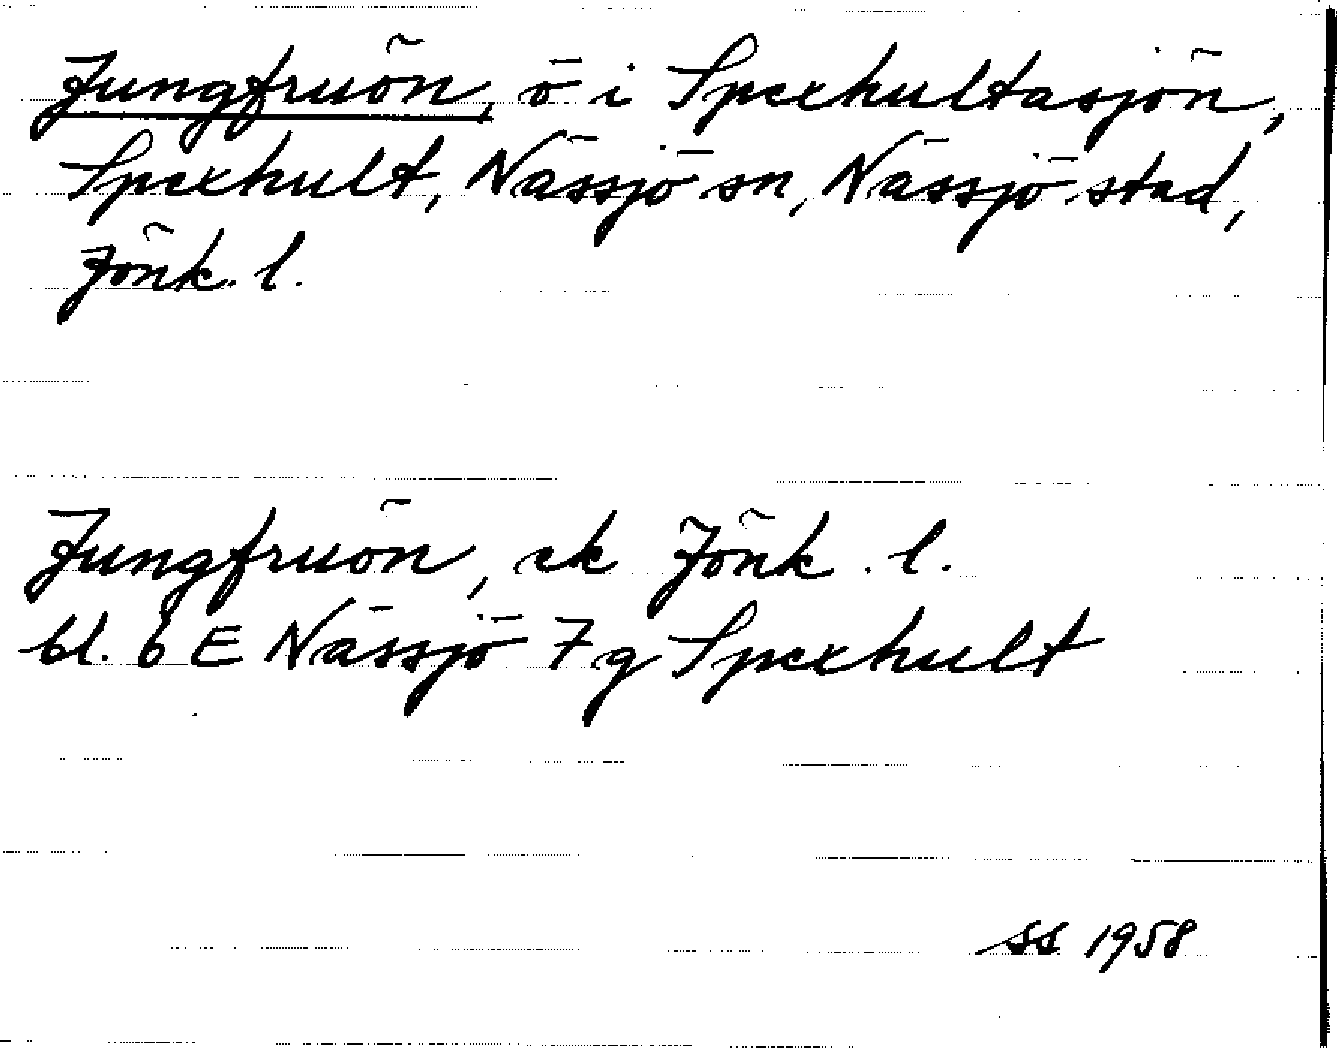 Jungfruön, ö i Spexhultasjön,
Spexhult, Nässjö sn, Nässjö stad,
Jönk. l.
Jungfruön, ek Jönk. l.
bl. 6 E Nässjö 7 g Spexhult
SS 1958